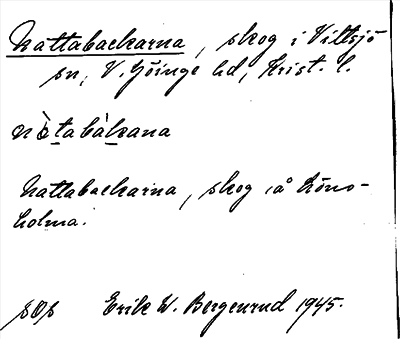 Nattabackarna, skog i Vittsjö
sn, V. Göinge hd, Krist. l.
nòtabàkana
Nattabackarna, skog på Höns-
holma.
sOs Erik W. Bergenrud 1945.